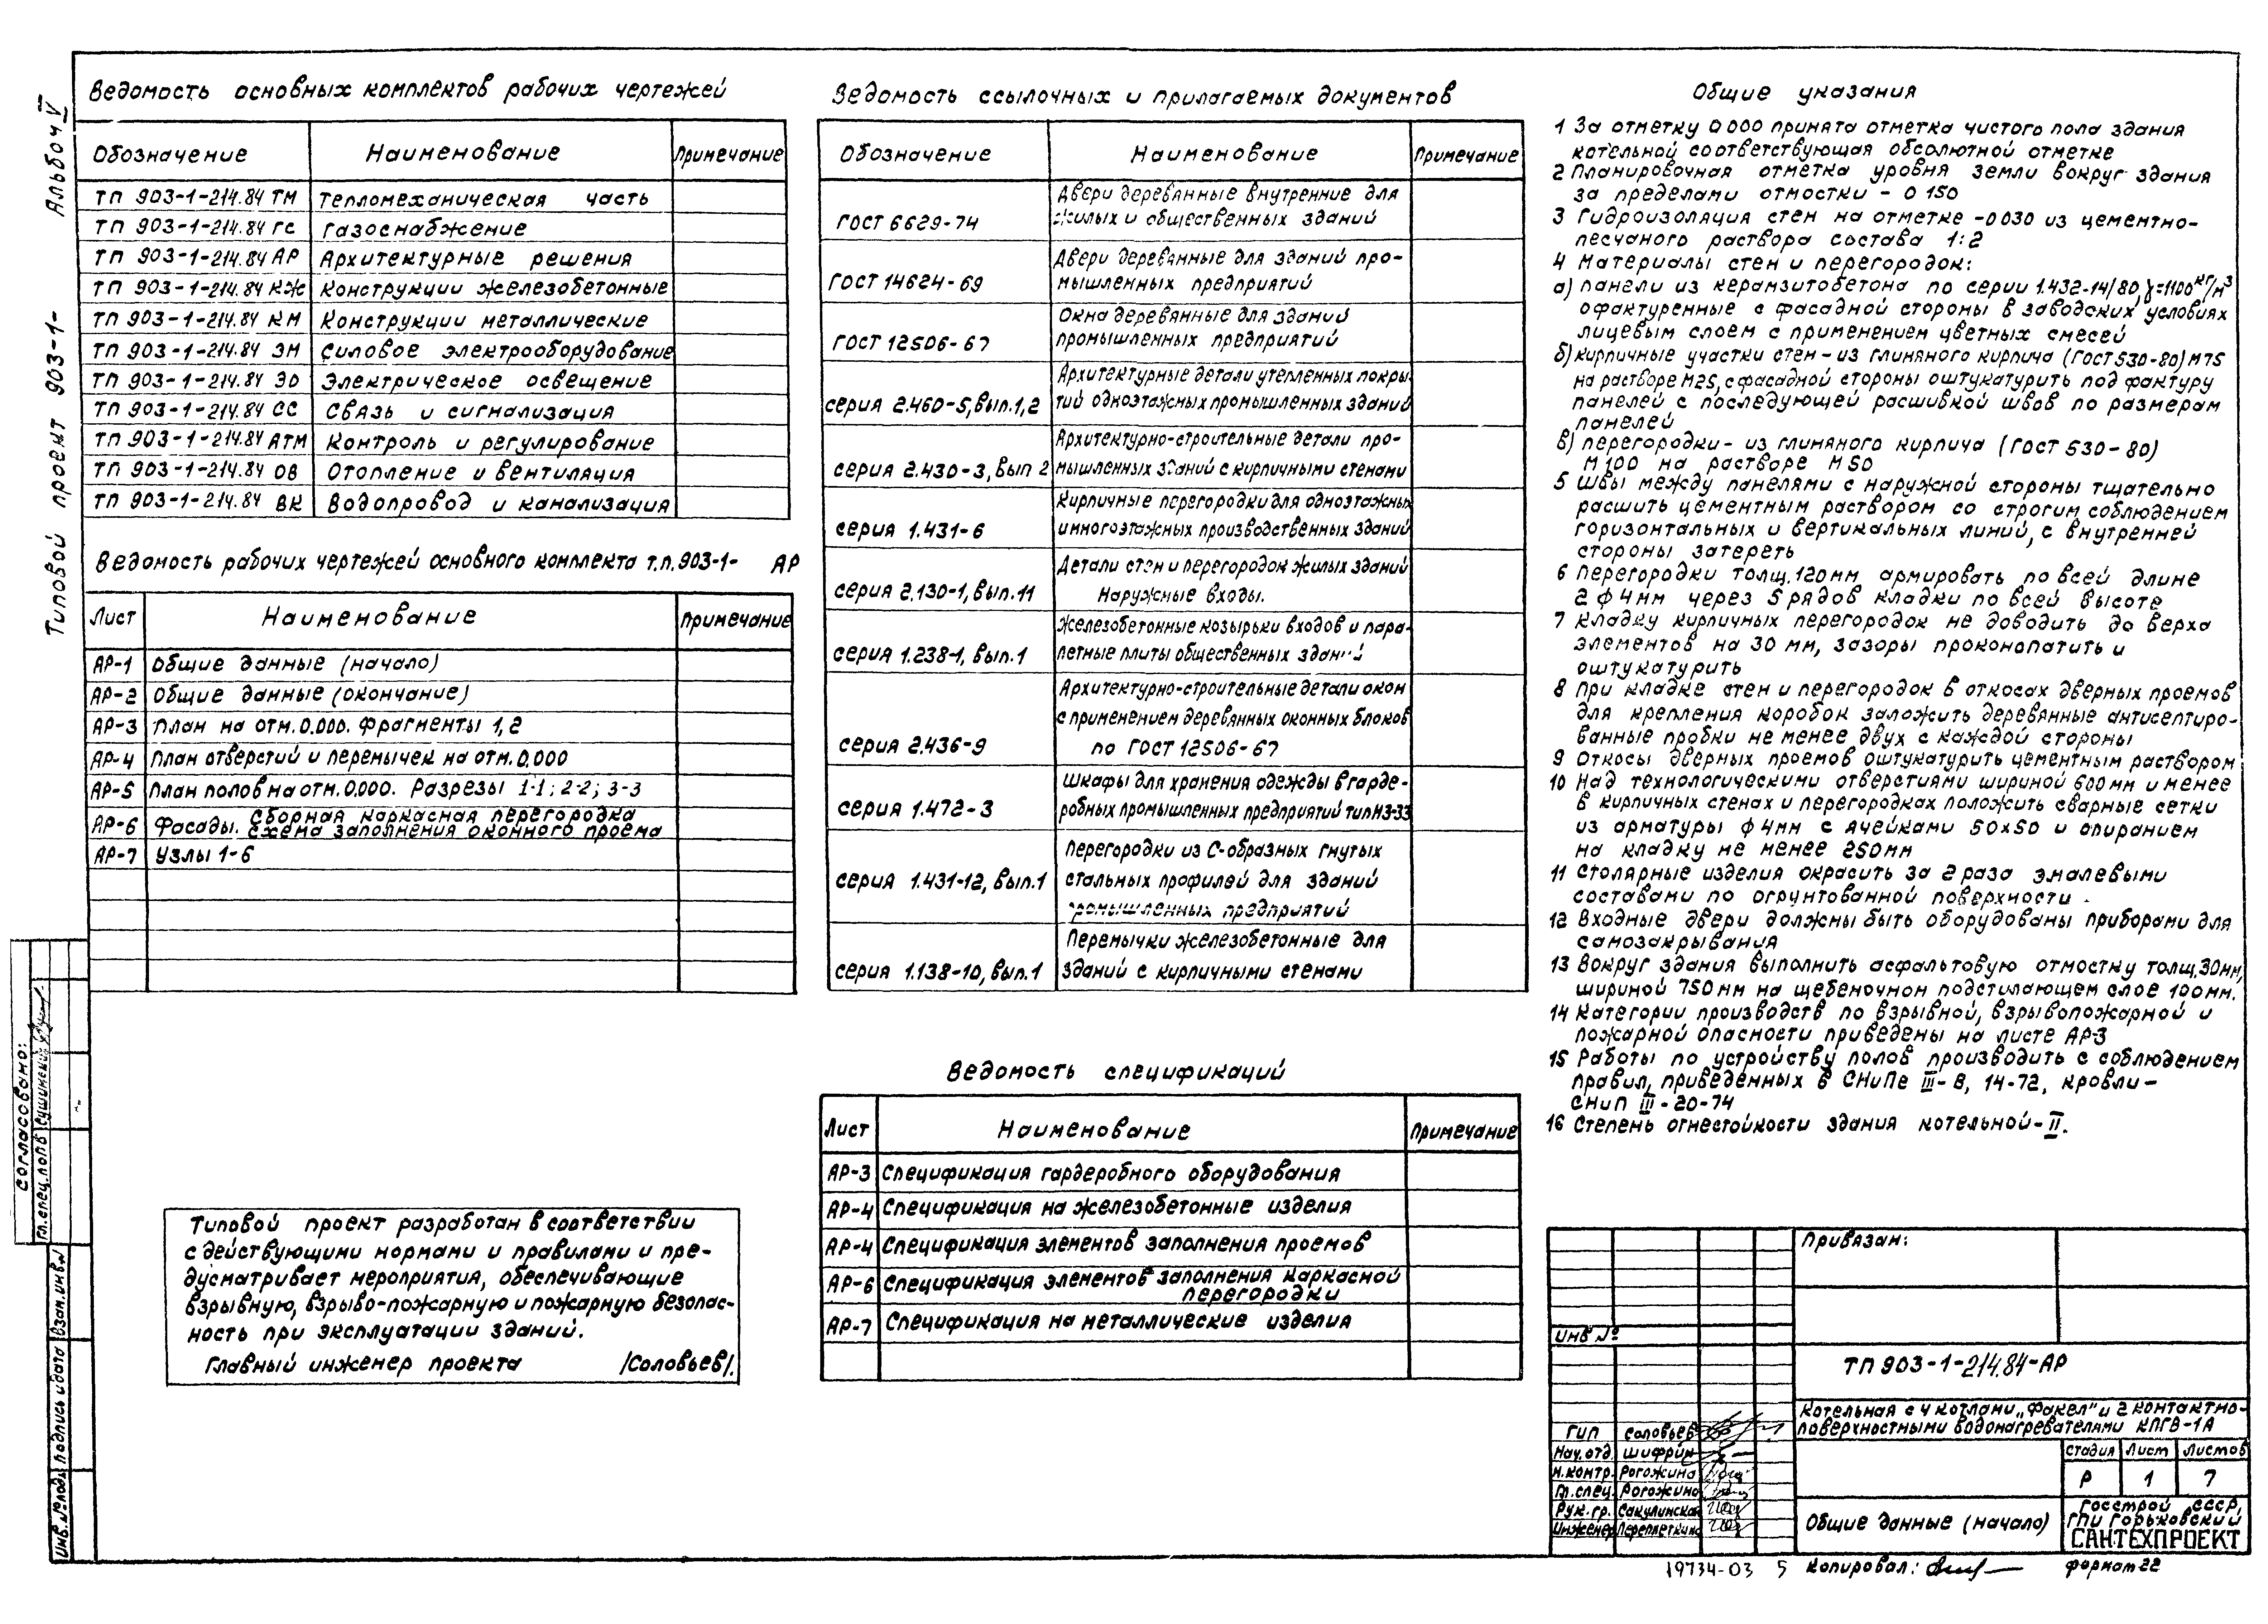 Альбом V
Типовой проект 903-1-
Ведомость основных комплектов рабочих чертежей
Обозначение Наименование Примечание
ТП 903-1-214.84 ТМ Тепломеханическая часть
ТП 903-1-214.84 ГС Газоснабжение
ТП 903-1-214.84 АР Архитектурные решения
ТП 903-1-214.84 КЖ Конструкции железобетонные
ТП 903-1-214.84 КМ Конструкции металлические
ТП 903-1-214.84 ЭМ Силовое электрооборудование
ТП 903-1-214.84 ЭО Электрическое освещение
ТП 903-1-214.84 СС Связь и сигнализация
ТП 903-1-214.84 АТМ Контроль и регулирование
ТП 903-1-214.84 ОВ Отопление и вентиляция
ТП 903-1-214.84 ВК Водопровод и канализация
Ведомость рабочих чертежей основного комплекта т.п. 903-1- АР
Лист Наименование Примечание
АР-1 Общие данные (начало)
АР-2 Общие данные (окончание)
АР-3 План на отм. 0.000. Фрагменты 1, 2
АР-4 План отверстий и перемычек на отм. 0,000
АР-5 План полов на отм. 0.000. Разрезы 1-1; 2-2; 3-3
АР-6 Фасады. Сборная каркасная перегородка
Схема заполнения оконного проема
АР-7 Узлы 1-6
Типовой проект разработан в соответствии
с действующими нормами и правилами и пре-
дусматривает мероприятия, обеспечивающие
взрывную, взрыво-пожарную и пожарную безопас-
ность при эксплуатации зданий.
Главный инженер проекта /Соловьев/.
Ведомость ссылочных и прилагаемых документов
Обозначение Наименование Примечание
Двери деревянные внутренние для
ГОСТ 6629-74 жилых и общественных зданий
Двери деревянные для зданий про-
ГОСТ 14624-69 мышленных предприятий
Окна деревянные для зданий
ГОСТ 12506-67 промышленных предприятий
Архитектурные детали утепленных покры
серия 2.460-5, вып. 1, 2 тий одноэтажных промышленных зданий
Архитектурно-строительные детали про-
серия 2.430-3, вып 2 мышленных зданий с кирпичными стенами
Кирпичные перегородки для одноэтажных
серия 1.431-6 и многоэтажных производственных зданий
Детали стен и перегородок жилых зданий
серия 2.130-1, вып. 11 Наружные входы.
Железобетонные козырьки входов и пара-
серия 1.238-1, вып. 1 петные плиты общественных зданий
Архитектурно-строительные детали окон
с применением деревянных оконных блоков
серия 2.436-9 по ГОСТ 12506-67
Шкафы для хранения одежды в гарде-
серия 1.472-3 робных промышленных предприятий тип МЗ-33
Перегородки из С-образных гнутых
серия 1.431-12, вып. 1 стальных профилей для зданий
промышленных предприятий
Перемычки железобетонные для
серия 1.138-10, вып. 1 зданий с кирпичными стенами
Ведомость спецификаций
Лист Наименование Примечание
АР-3 Спецификация гардеробного оборудования
АР-4 Спецификация на железобетонные изделия
АР-4 Спецификация элементов заполнения проемов
АР-6 Спецификация элементов заполнения каркасной
перегородки
АР-7 Спецификация на металлические изделия
Общие указания
1 За отметку 0 000 принята отметка чистого пола здания
котельной соответствующая абсолютной отметке
2 Планировочная отметка уровня земли вокруг здания
за пределами отмостки - 0 150
3 Гидроизоляция стен на отметке -0 030 из цементно-
песчаного раствора состава 1:2
4 Материалы стен и перегородок:
а) панели из керамзитобетона по серии 1.432-14/80, γ=1100 кг/м3
офактуренные с фасадной стороны в заводских условиях
лицевым слоем с применением цветных смесей
б) кирпичные участки стен - из глиняного кирпича (ГОСТ 530-80) М75
на растворе М25, с фасадной стороны оштукатурить под фактуру
панелей с последующей расшивкой швов по размерам
панелей
в) перегородки - из глиняного кирпича (ГОСТ 530-80)
М100 на растворе М50
5 Швы между панелями с наружной стороны тщательно
расшить цементным раствором со строгим соблюдением
горизонтальных и вертикальных линий, с внутренней
стороны затереть
6 Перегородки толщ. 120 мм армировать по всей длине
2 ф 4 мм через 5 рядов кладки по всей высоте
7 Кладку кирпичных перегородок не доводить до верха
элементов на 30 мм, зазоры проконопатить и
оштукатурить
8 При кладке стен и перегородок в откосах дверных проемов
для крепления коробок заложить деревянные антисептиро-
ванные пробки не менее двух с каждой стороны
9 Откосы дверных проемов оштукатурить цементным раствором
10 Над технологическими отверстиями шириной 600 мм и менее
в кирпичных стенах и перегородках положить сварные сетки
из арматуры ф 4 мм с ячейками 50х50 и опиранием
на кладку не менее 250 мм
11 Столярные изделия окрасить за 2 раза эмалевыми
составами по огрунтованной поверхности.
12 Входные двери должны быть оборудованы приборами для
самозакрывания
13 Вокруг здания выполнить асфальтовую отмостку толщ. 30 мм,
шириной 750 мм на щебеночном подстилающем слое 100 мм.
14 Категории производств по взрывной, взрывопожарной и
пожарной опасности приведены на листе АР-3
15 Работы по устройству полов производить с соблюдением
правил, приведенных в СНиПе III-В, 14-72, кровли-
СНиП III-20-74
16 Степень огнестойкости здания котельной - II.
согласовано:
Гл. спец. ОПВ Сушинский
Инв. № подл. Подпись и дата Взам. инв. №
Привязан:
Инв №
ТП 903-1-214.84-АР
Котельная с 4 котлами „Факел" и 2 контактно-
поверхностными водонагревателями КПГВ-1А
ГИП Соловьев
Нач. отд. Шифрин
Н. контр. Рогожина
Гл. спец. Рогожина
Рук. гр. Сакулинская
Инженер Переплеткина
Стадия Лист Листов
Р 1 7
Общие данные (начало)
Госстрой СССР,
ГПИ Горьковский
САНТЕХПРОЕКТ
19734-03 5 Копировал: формат 22